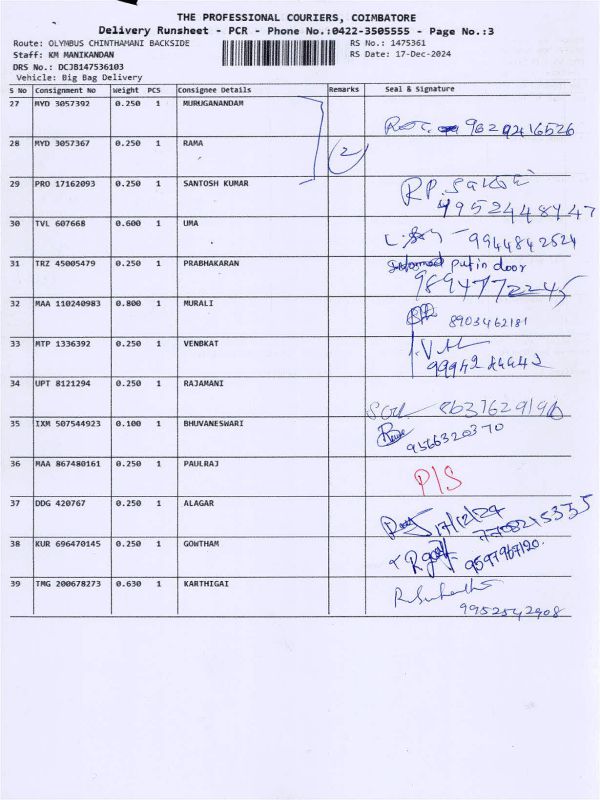 THE PROFESSIONAL COURIERS, COIMBATORE
Delivery Runsheet - PCR - Phone No.:0422-3505555 - Page No.:3
Route: OLYMBUS CHINTHAMANI BACKSIDE RS No.: 1475361
Staff: KM MANIKANDAN RS Date: 17-Dec-2024
DRS No.: DCJB147536103
Vehicle: Big Bag Delivery
S No Consignment No Weight PCS Consignee Details Remarks Seal & Signature
27 MYD 3057392 0.250 1 MURUGANANDAM
28 MYD 3057367 0.250 1 RAMA 2
29 PRO 17162093 0.250 1 SANTOSH KUMAR
30 TVL 607668 0.600 1 UMA 9944842524
31 TRZ 45005479 0.250 1 PRABHAKARAN informed put in door
9894772245
32 MAA 110240983 0.800 1 MURALI 8903462181
33 MTP 1336392 0.250 1 VENBKAT
34 UPT 8121294 0.250 1 RAJAMANI
35 IXM 507544923 0.100 1 BHUVANESWARI 9566320370
36 MAA 867480161 0.250 1 PAULRAJ P/S
37 DDG 420767 0.250 1 ALAGAR 17/12/24
38 KUR 696470145 0.250 1 GOWTHAM
39 TMG 200678273 0.630 1 KARTHIGAI
9952542908